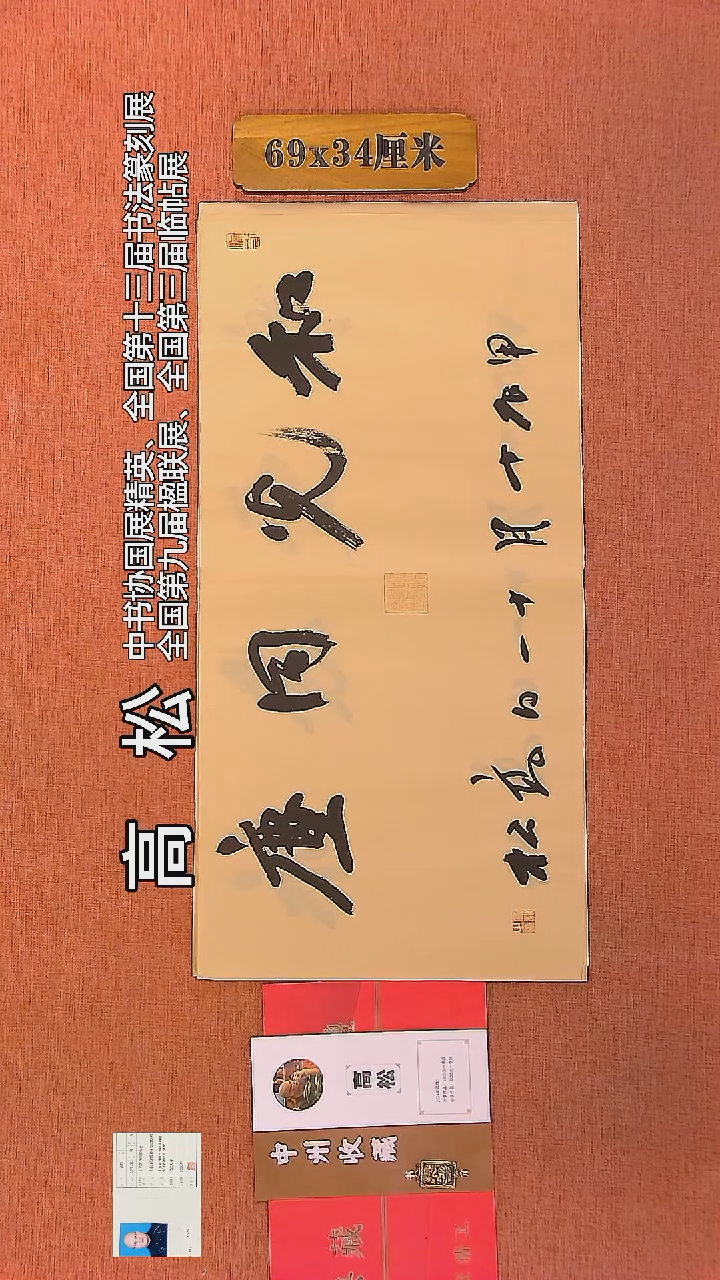 69x34厘米
高 松
中书协国展精英、全国第十三届书法篆刻展
全国第九届楹联展、全国第三届临帖展
和光同塵
甲辰十月十一日高松
高松
中州收藏
藏